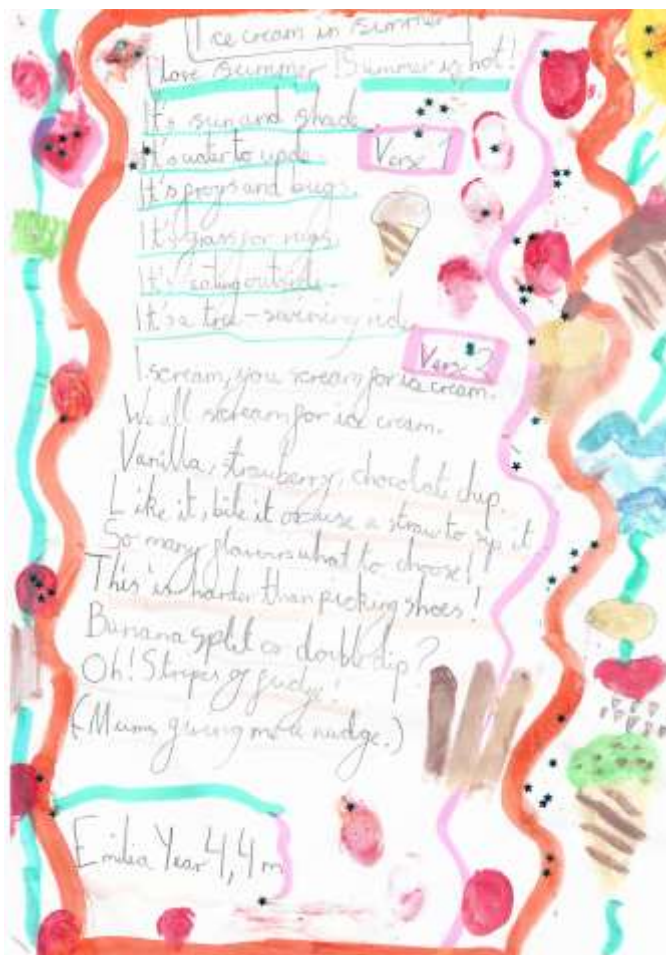 Ice cream in summer
I love summer! Summer is hot!
It's sun and shade.
It's water to
Verse 1
It's frogs and bugs.
It's grass for rugs.
It's eating outside.
It's a tree-swining ride.
Verse 2
I scream, you scream for ice cream.
We all scream for ice cream.
Vanilla, strawberry, chocolate chip.
Like it, bite it or use a straw to sip it
So many flavours what to choose!
This is harder than picking shoes!
Banana split or double dip?
Oh! Stripes of fudge!
(Mums giving me a nudge.)
Emilia Year 4, 4m